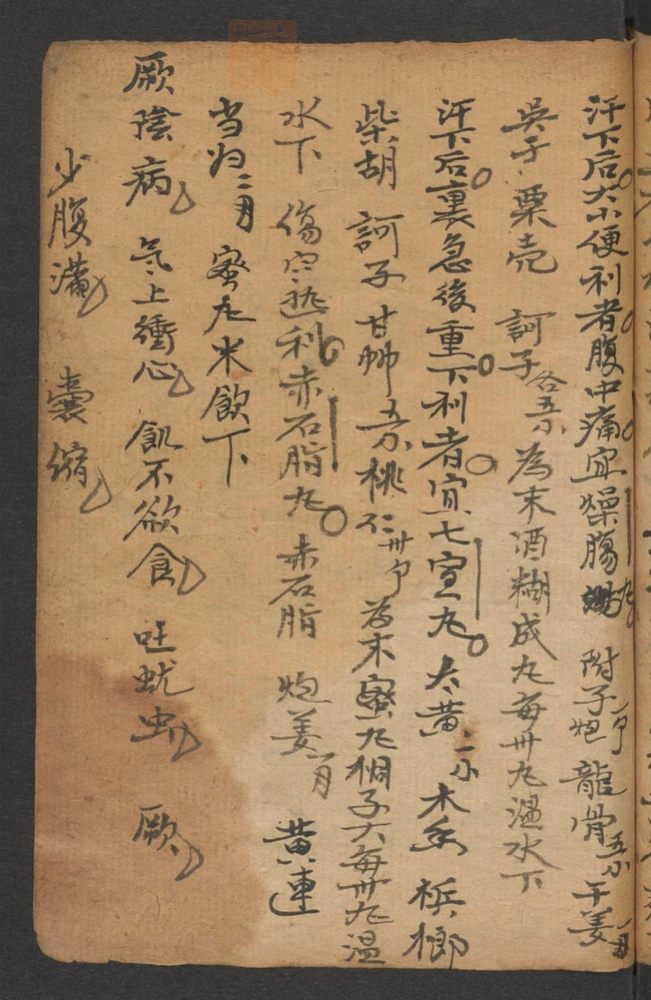 汗下后大小便利者腹中痛宜燥腸丸 附子炮 龍骨 干姜
吳子 粟壳 訶子 為末酒糊成丸每卅丸温水下
汗下后裏急後重下利者宜七宣丸 大黄 木香 梹榔
柴胡 訶子 甘艸 桃仁 為末蜜丸桐子大每卅丸温
水下 傷寒热利赤石脂丸 赤石脂 炮姜 黄連
当归 蜜丸米飲下
厥陰病 气上衝心 飢不欲食 吐蚘虫 厥
少腹满 囊缩